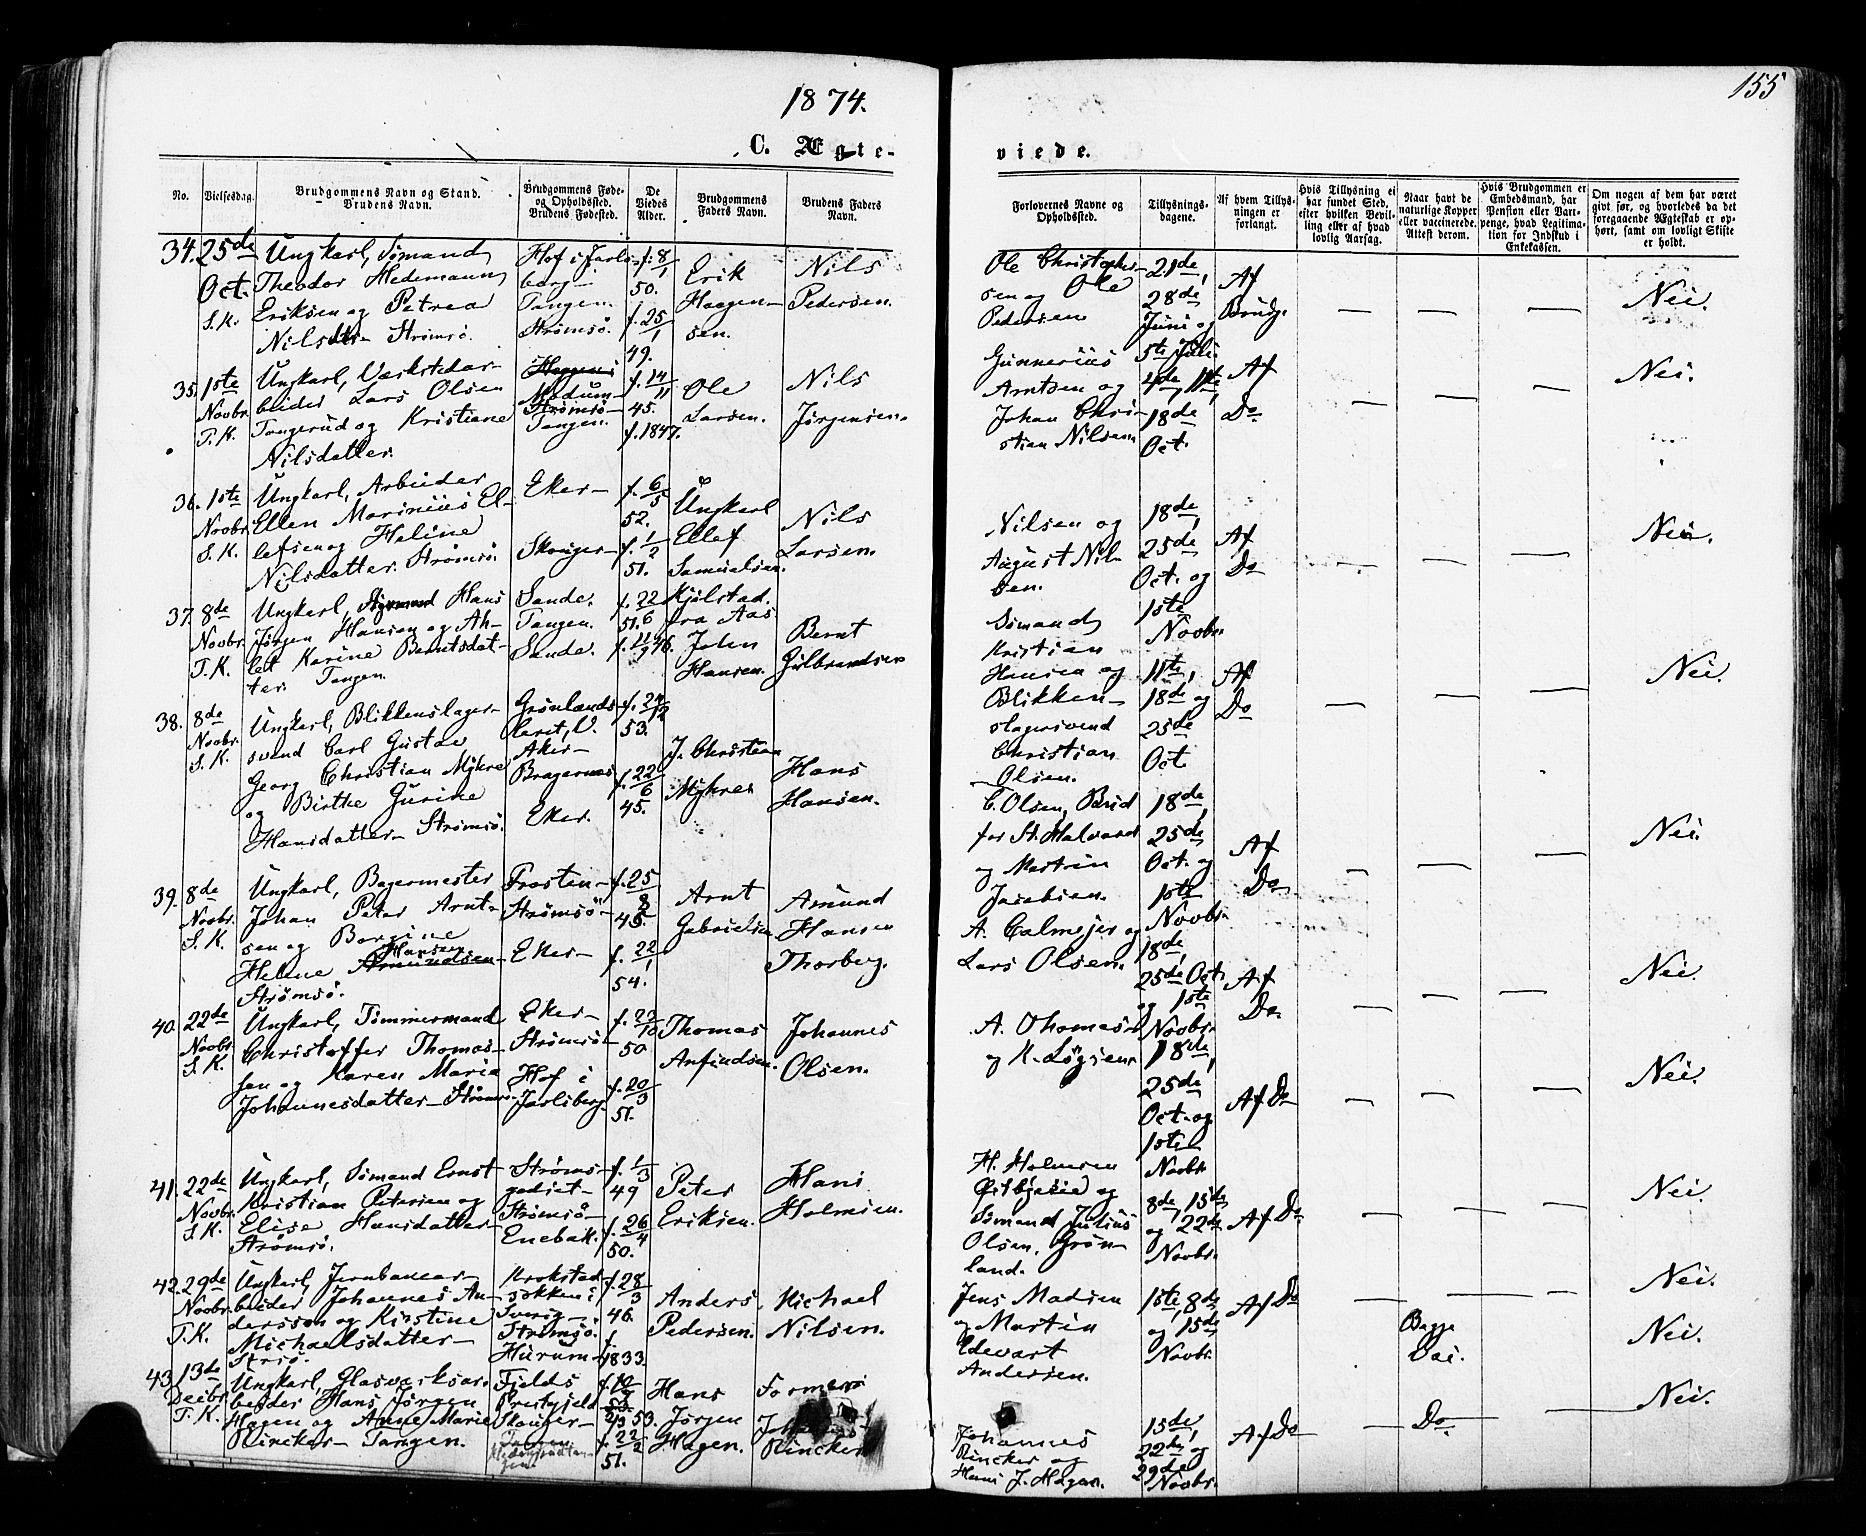 1874.
155
C. Ægte-
viede.
No.
Vielsesdag.
Brudgommens Navn og Stand.
Brudens Navn.
Brudgommens Føde-
og Opholdssted.
Brudens Fødested.
De
Viedes
Alder.
Brudgommens
Faders Navn.
Brudens Faders
Navn.
Forlovernes Navne og
Opholdssted.
Tillysnings-
dagene.
Af hvem Tillys-
ningen er
forlangt.
Hvis Tillysning ei
har fundet Sted,
efter hvilken Bevil-
ling eller af hvad
lovlig Aarsag.
Naar havt de
naturlige Kopper
eller vaccinerede.
Attest derom.
Hvis Brudgommen er
Embedsmand, har
Pension eller Vart-
penge, hvad Legitima-
tion for Indskud i
Enkekassen.
Om nogen af dem har været
gift før, og hvorledes da det
foregaaende Ægteskab er op-
hørt, samt om lovligt Skifte
er holdt.
34.
25de
Oct.
S. K.
Ungkarl, Sømand
Theodor Hedemann
Eriksen og Petrea
Nilsdtr. Strømsø.
Hof i Jarls-
berg-
Tangen.
Strømsø.
f. 8/1
50.
f. 25/1
49.
Erik
Haagen-
sen.
Nils
Pedersen.
Ole Christopher-
sen og Ole
Pedersen
21de,
28de
Juni og
5te Juli
Af
Brudg.
Nei.
35.
1ste
Novbr.
T. K.
Ungkarl, Værkstedar-
beider Lars Olsen
Tangerud og Kristiane
Nilsdatter.
Modum-
Strømsø-
Tangen.
f. 14/11
45.
f. 1847.
Ole
Larsen.
Nils
Jørgensen.
Gunnerius
Arntsen og
Johan Chri-
stian Nilsen
4de, 11te,
18de
Oct.
Af
Do
Nei.
36.
1ste
Novbr.
S. K.
Ungkarl, Arbeider
Ellen Marinius El-
lefsen og Heline
Nilsdatter. Strømsø.
Eker-
Skouger-
f. 6/5
52.
f. 1/2
51.
Ungkarl
Ellef
Samuelsen.
Nils
Larsen.
Nilsen og
August Nil-
sen.
18de,
25de
Oct. og
1ste
Novbr.
Af
Do
Nei.
37.
8de
Novbr.
T. K.
Ungkarl, Hans
Jørgen Hansen og Ah-
let Karine Berntsdat-
ter. Tangen.
Sande.
Tangen.
Sande.
f. 22/6
51.
Kjølstad.
fra Aas
John
Hansen.
Bernt
Gulbrandsen
Sømand
Kristian
Hansen og
Blikken-
slagersvend
Christian
Olsen.
11te,
18de og
25de
Oct.
Af
Do
Nei.
38.
8de
Novbr.
S. K.
Ungkarl, Blikkenslager-
svend Carl Gustav
Georg Christian Myhre
og Birthe Gurine
Hansdatter- Strømsø.
Grønlands-
leret, V.
Aker-
Bragernæs
Eker.
f. 24/12
53.
f. 22/6
45.
J. Christian
Myhre
Hans
Hansen.
C. Olsen,
for St. Halvard
og Martin
Jacobsen.
18de,
25de
Oct. og
1ste
Novbr.
Af
Do
Nei.
39.
8de
Novbr.
S. K.
Ungkarl, Bagermester
Johan Peter Arnt-
sen og Bergine
Hansen
Helene Amundsen-
Strømsø.
Frosten-
Strømsø-
Eker-
f. 25/8
45.
f. 22/1
54.
Arnt
Gabrielsen
Amund
Hansen
Thorberg.
A. Calmeyer og
Lars Olsen.
18de,
25de Oct.
og 1ste
Novbr.
Af
Do
Nei.
40.
22de
Novbr.
S. K.
Ungkarl, Tømmermand
Christoffer Thomas-
sen og Karen Maria
Johannesdatter- Strømsø.
Eker-
Strømsø-
Hof i
Jarlsberg.
f. 22/10
50
f. 20/3
51.
Thomas
Anfindsen.
Johannes
Olsen.
og
18de,
25de
Oct. og
1ste
Novbr.
Af Do
Nei.
41.
22de
Novbr.
S. K.
Ungkarl, Sømand Ernst
Kristian Petersen og
Elise Hansdatter-
Strømsø.
Strøms-
godset-
Strømsø-
Enebak.
f. 1/3
49
f. 26/4
50.
Peter
Eriksen.
Hans
Holmsen.
H. Holmsen
og
Sømand Julius
Olsen, Grøn-
land.
8de, 15de
og 22de
Novbr.
Af Do
Nei.
42.
29de
Novbr.
T. K.
Ungkarl, Jernbanear-
beider Johannes An-
dersson og Kirstine
Michaelsdatter-
Krokstad
sokken i
Sverig-
Strømsø.
Hurum-
f. 28/3
46.
f.
1833.
Anders
Pedersen.
Michael
Nilsen.
Jens Madsen
og Martin
Edevart
Andersen.
1ste, 8de
og 15de
Novbr.
Af Do
Begge
Vac.
Nei.
Nei.
43.
13de
Decbr.
T. K.
Ungkarl, Glasværksar-
beider Hans Jørgen
Hagen og Anne Marie
Rincker- Tangen.
Fjelds
Prestgjeld
Skouger-
Tangen.
f. 22/2
51.
Hans
Jørgen
Hagen.
Rincker
Johannes
Rincker og
Hans J. Hagen.
15de,
22de og
29de
Novbr.
Af Do
Do
Nei.